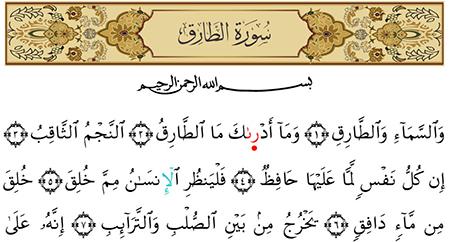 سُورَةُ الطَّارِقِ
بِسْمِ اللَّهِ الرَّحْمَٰنِ الرَّحِيمِ
وَالسَّمَآءِ وَالطَّارِقِ ﴿١﴾ وَمَآ أَدْرىٰكَ مَا الطَّارِقُ ﴿٢﴾ النَّجْمُ الثَّاقِبُ ﴿٣﴾
إِن كُلُّ نَفْسٍ لَّمَّا عَلَيْهَا حَافِظٌ ﴿٤﴾ فَلْيَنظُرِ الْإِنسَٰنُ مِمَّ خُلِقَ ﴿٥﴾ خُلِقَ
مِن مَّآءٍ دَافِقٍ ﴿٦﴾ يَخْرُجُ مِنۢ بَيْنِ الصُّلْبِ وَالتَّرَآئِبِ ﴿٧﴾ إِنَّهُۥ عَلَىٰ